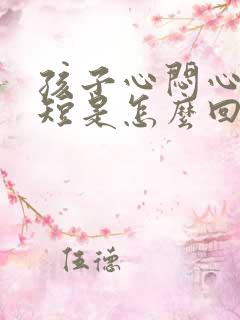 孩子心悶心
短是怎麼回
伍德